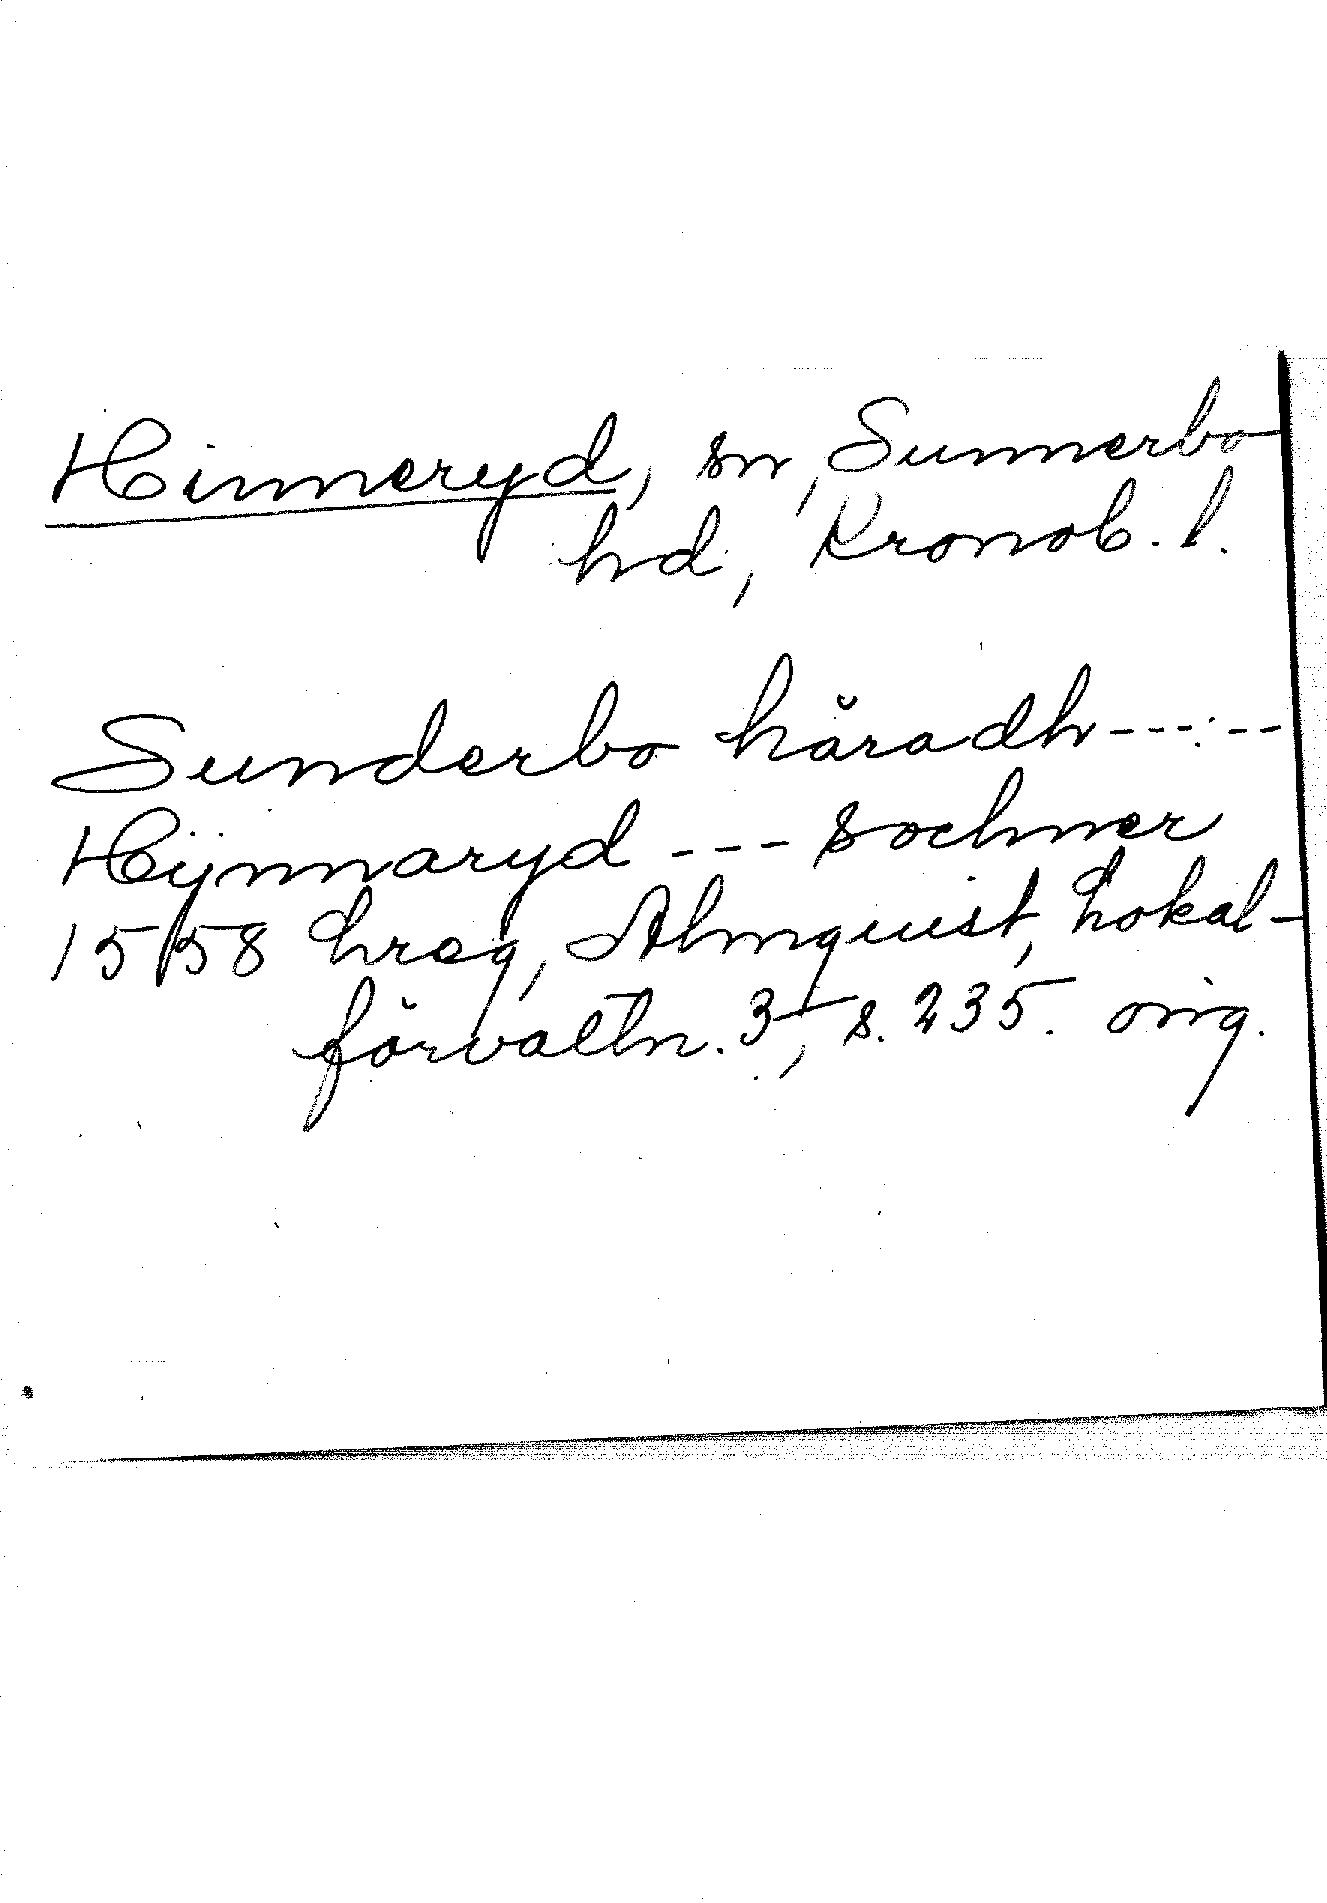 Hinneryd, sn, Sunnerbo
hd, Kronob. l.
Sunderbo häradh ------
Hÿnnaryd --- sochner
1558 hreg, Almquist, Lokal-
förvaltn. 3, s. 235. orig.